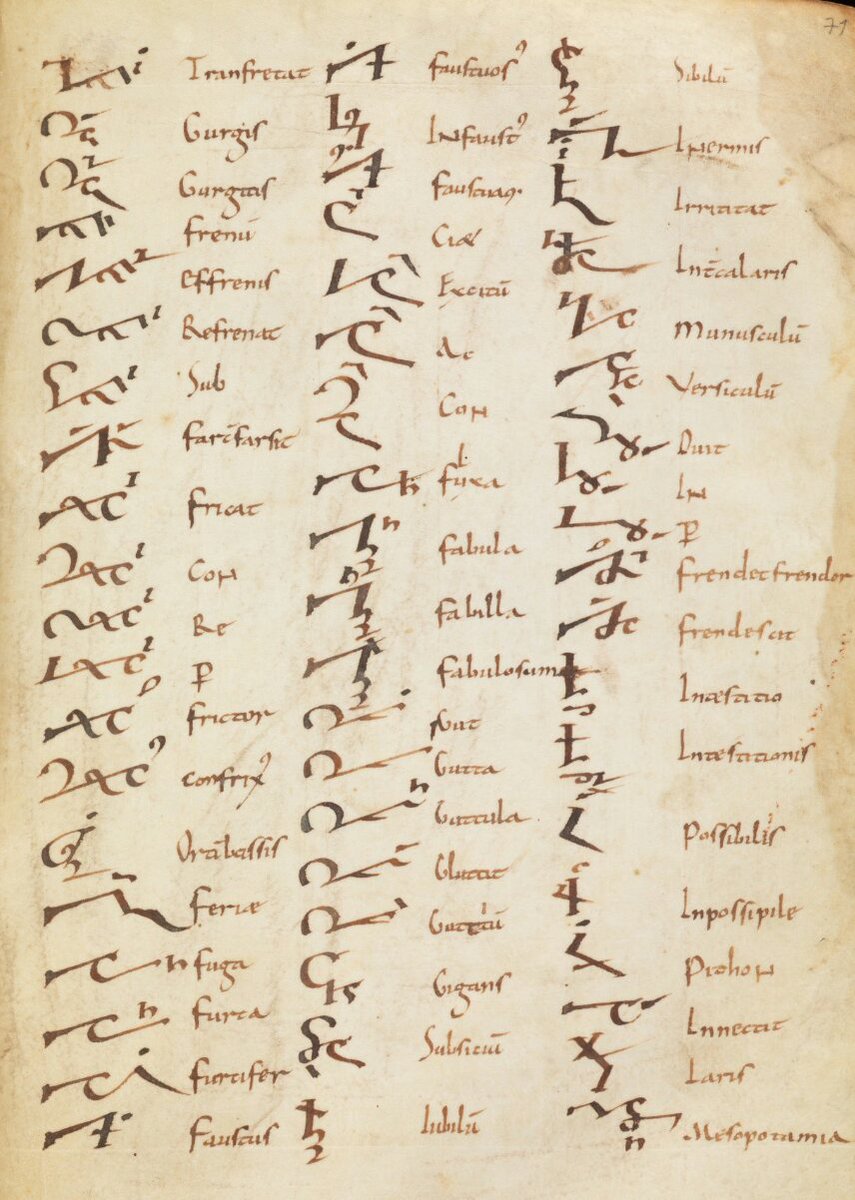 71
Tranfretat
Gurgis
Gurgitis
frenū
effrenis
Refrenat
Sub
farc̄farsit
fricat
Con
Re
P̄
frictor
confrixꝰ
feriæ
fuga
furca
furcifer
Faustus
faustuosꝰ
INfaustꝰ
faustuaq·
Ciæ
Excitū
Ac
Con
fixa
fabula
fabilla
fabulosum
Gutta
Guttula
Gluttit
Gigans
Subsiciuū
Iubilū
Sibilū
INermis
Irrititat
Int̄calaris
Munusculū
Versiculū
Duit
IN
P̄
frendet frendor
frendescit
Intestatio
Intestationis
Possibilis
Inpossipile
Pithon
Innectit
Laris
Mesopotamia